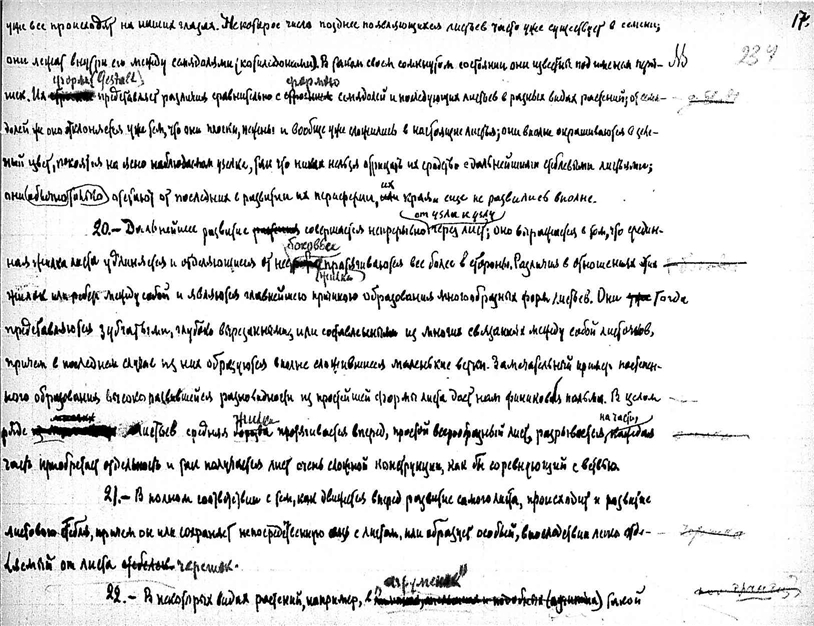 17.
уже все происходит на наших глазах. Некоторое число позднее появляющихся листьев часто уже существует в семени;
они лежат внутри его между семядолями (котиледонами). В таком своем сомкнутом состоянии они известны под именем перы- № 237
форма (Gestalt) формою
шек. Их представляет различия сравнительно с семядолей и последующих листьев в разных видах растений; от семя-
долей же оно отклоняется уже тем, что они плоски, нежны и вообще уже сложились в настоящие листья; они вполне окрашиваются в зеле-
ный цвет, покоятся на ясно наблюдаемом узелке, так что никак нельзя отрицать их сродство с дальнейшими стеблевыми листьями;
они обычно только отстают от последних в развитии их периферии, их края еще не развились вполне.
от узла к узлу
20.— Дальнейшее развитие совершается непрерывно через лист; оно выражается в том, что средин-
боковые
ная жилка листа удлиняется и отделяющиеся от нее протягиваются все более в стороны. Различия в отношениях
жилки
жилок или ребер между собой и являются главнейшею причиною образования многообразных форм листьев. Они тогда
представляются зубчатыми, глубоко вырезанными или составленными из многих связанных между собой листочков,
причем в последнем случае из них образуются вполне сложившиеся маленькие ветки. Замечательный пример постепен-
ного образования высоко развившейся разновидности из простейшей формы листа дает нам финиковая пальма. В целом
жилка на части,
ряде листьев средняя протягивается вперед, простой веерообразный лист разрывается, каждая
часть приобретает отдельность и так получается лист очень сложной конструкции, как бы соревнующий с ветвью.
21.— В полном соответствии с тем, как движется вперед развитие самого листа, происходит и развитие
листового стебля, причем он или сохраняет непосредственную с листом, или образует особый, впоследствии легко отде-
ляемый от листа черешок.
22.— В некоторых видах растений, например, в такой